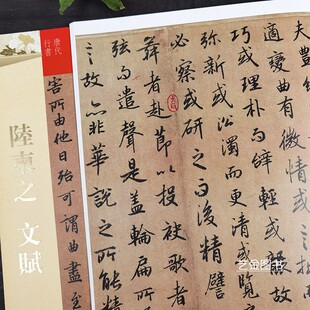 夫豐
適變曲有微情或
巧或理朴而辞輕或襲故
弥新或沿濁而更清或覽
必察或研之而後精譬
舞者赴節以投袂歌者
弦而遣聲是盖輪扁所
之故亦非華說之所能精
唐代
行書
害所由他日殆可謂曲盡
陸柬之 文賦
艺金图书